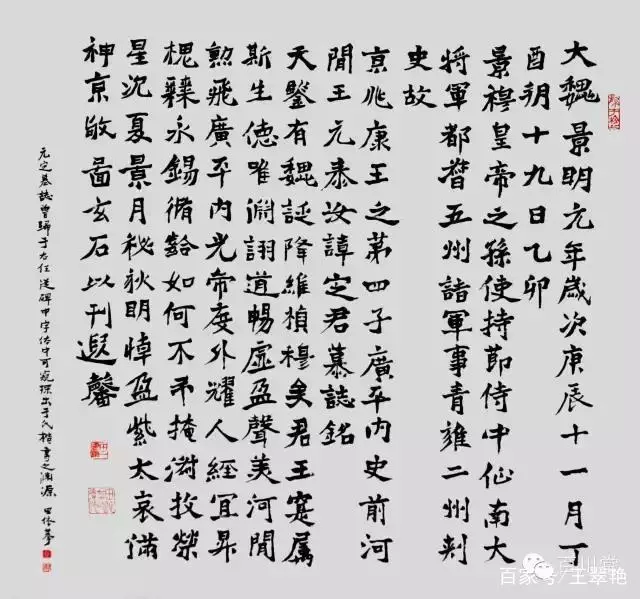 大魏景明元年歲次庚辰十一月丁
酉朔十九日乙卯
景穆皇帝之孫使持節侍中征南大
將軍都督五州諸軍事青雍二州刺
史故
京兆康王之第四子廣平內史前河
間王元泰安諱定君墓誌銘
天鑒有魏誕降維楨穆矣君王寔屬
斯生德唯淵詡道暢虛盈聲美河間
勲飛廣平內光帝度外耀人經宜昇
槐棘永錫脩齡如何不弔掩淪投榮
星沉夏景月秘秋明悼盈紫太哀滿
神京敬啚玄石以刊遐馨
元定墓誌曾歸于右任從碑中字体中可窺探出于氏楷書之淵源 摹
百川堂
百家号/王翠艳